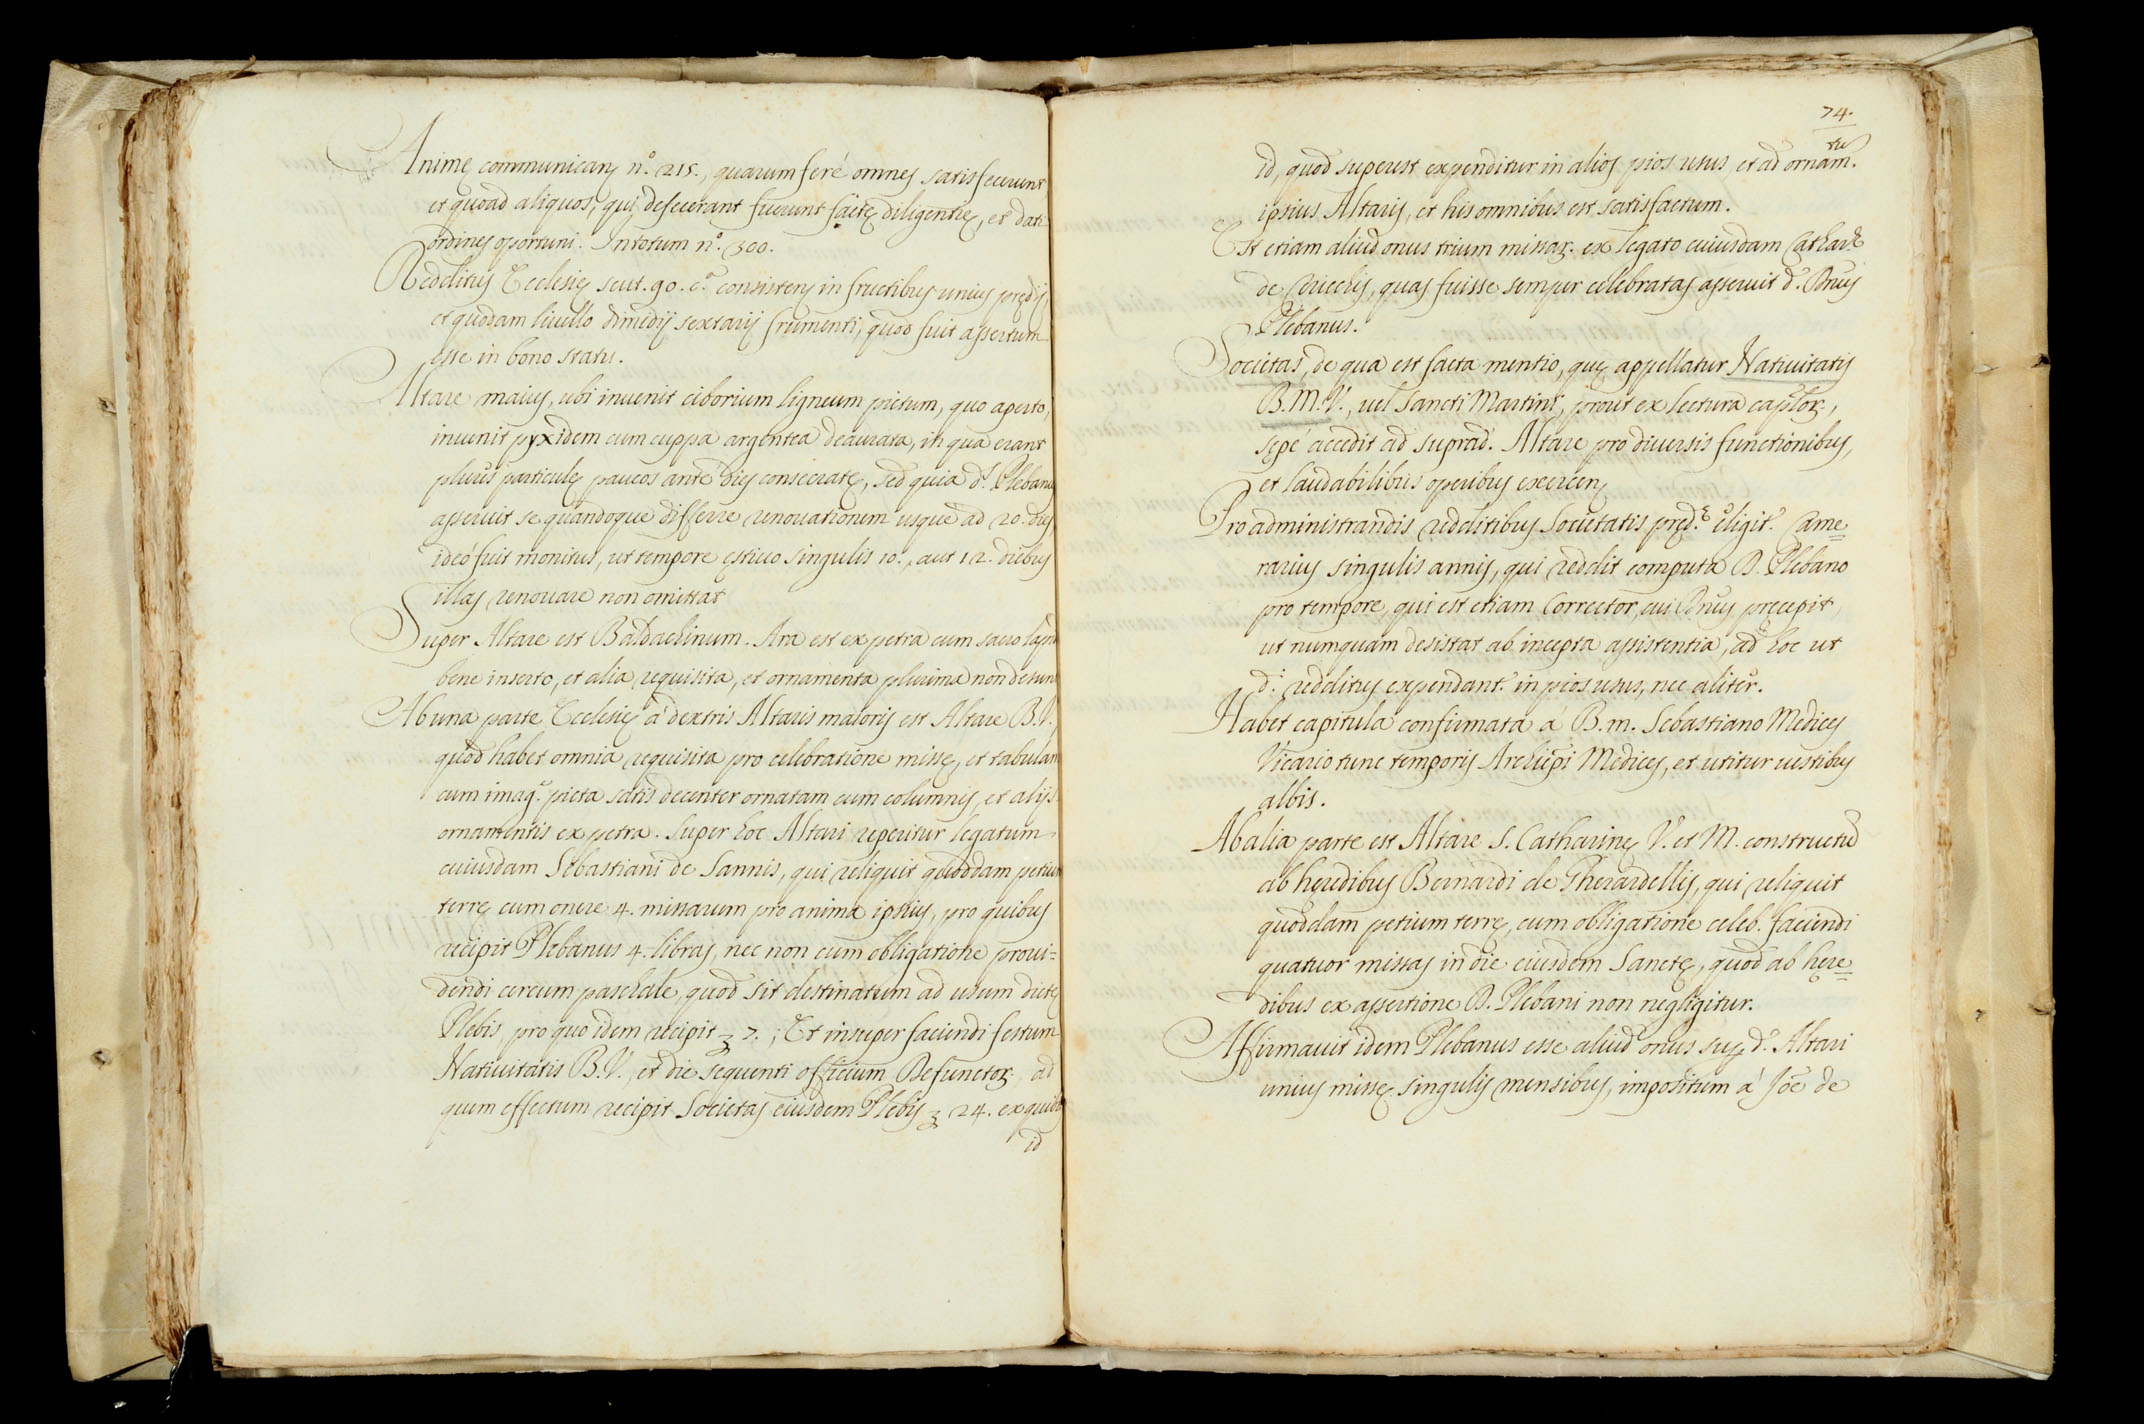 Animę communicanẽ n.º 215., quarum ferè omnes satisfecerunt
et quoad aliquos, qui defecerant fuerunt factę diligentię, et dati
ordines oportuni. In totum n.º 300.
Redditus Ecclesię scut. 90. cª consistens in fructibus unius prędij,
et quodam livello dimedij sextarij frumenti, quod fuit assertum
esse in bono statu.
Altare maius, ubi invenit ciborium ligneum pictum, quo aperto,
invenit pyxidem cum cuppa argentea deaurata, in qua erant
plures particulę paucos ante dies consecratę, sed quia d.s Plebanus
asseruit se quandoque differre renovationem usque ad 20. dies,
ideò fuit monitus, ut tempore ęstivo singulis 10., aut 12. diebus
illas renovare non omittat
Super Altare est Baldachinum. Ara est ex petra cum sacro lapi
bene inserto, et alia requisita, et ornamenta plurima non desun
Ab una parte Ecclesię à dextris Altaris maioris est Altare B.V.,
quod habet omnia requisita pro celebratione missę, et tabulam
cum imag.e picta satis decenter ornatam cum columnis, et alijs
ornamentis ex petra. Super hoc Altari reperitur legatum
cuiusdam Sebastiani de Sannis, qui reliquit quoddam petium
terrę cum onere 4. missarum pro anima ipsius, pro quibus
recipit Plebanus 4. libras, nec non cum obligatione provi=
dendi cereum paschale, quod sit destinatum ad usum dictę
Plebis, pro quo idem recipit ʒ 7.; Et insuper faciendi festum
Nativitatis B.V., et die sequenti officium Defunctor., ad
quem effectum recipit Societas eiusdem Plebis ʒ 24. ex quibus
id
74.
id, quod superest expenditur in alios pios usus, et ad ornam.tu
ipsius Altaris, et his omnibus est satisfactum.
Est etiam aliud onus trium missar. ex legato cuiusdam Cathar.ę
de Cerechis, quas fuisse semper celebratas asseruit d.s Dnus
Plebanus.
Societas, de qua est facta mentio, quę appellatur Nativitatis
B.M.V., vel Sancti Martini, prout ex lectura caplor.,
sępè accedit ad suprad. Altare pro diversis functionibus,
et laudabilibus operibus exercenẽ
Pro administrandis redditibus Societatis pręd.ę eligit.r Came=
rarius singulis annis, qui reddit computa D. Plebano
pro tempore, qui est etiam Corrector, cui Dnus pręcepit,
ut numquam desistat ab incepta assistentia, ad hoc ut
d.i redditus expendant.r in pios usus, nec aliter.
Habet capitula confirmata à B.m. Sebastiano Medices
Vicario tunc temporis Archiepi Medices, et utitur vestibus
albis.
Ab alia parte est Altare S. Catharinę V. et M. constructũ
ab heredibus Bernardi de Gherardellis, qui reliquit
quoddam petium terrę, cum obligatione celeb. faciendi
quatuor missas in die eiusdem Sanctę, quod ab hęre=
dibus ex assertione D. Plebani non negligitur.
Affirmavit idem Plebanus esse aliud onus sup. d.o Altari
unius missę singulis mensibus, impositum à Joe de